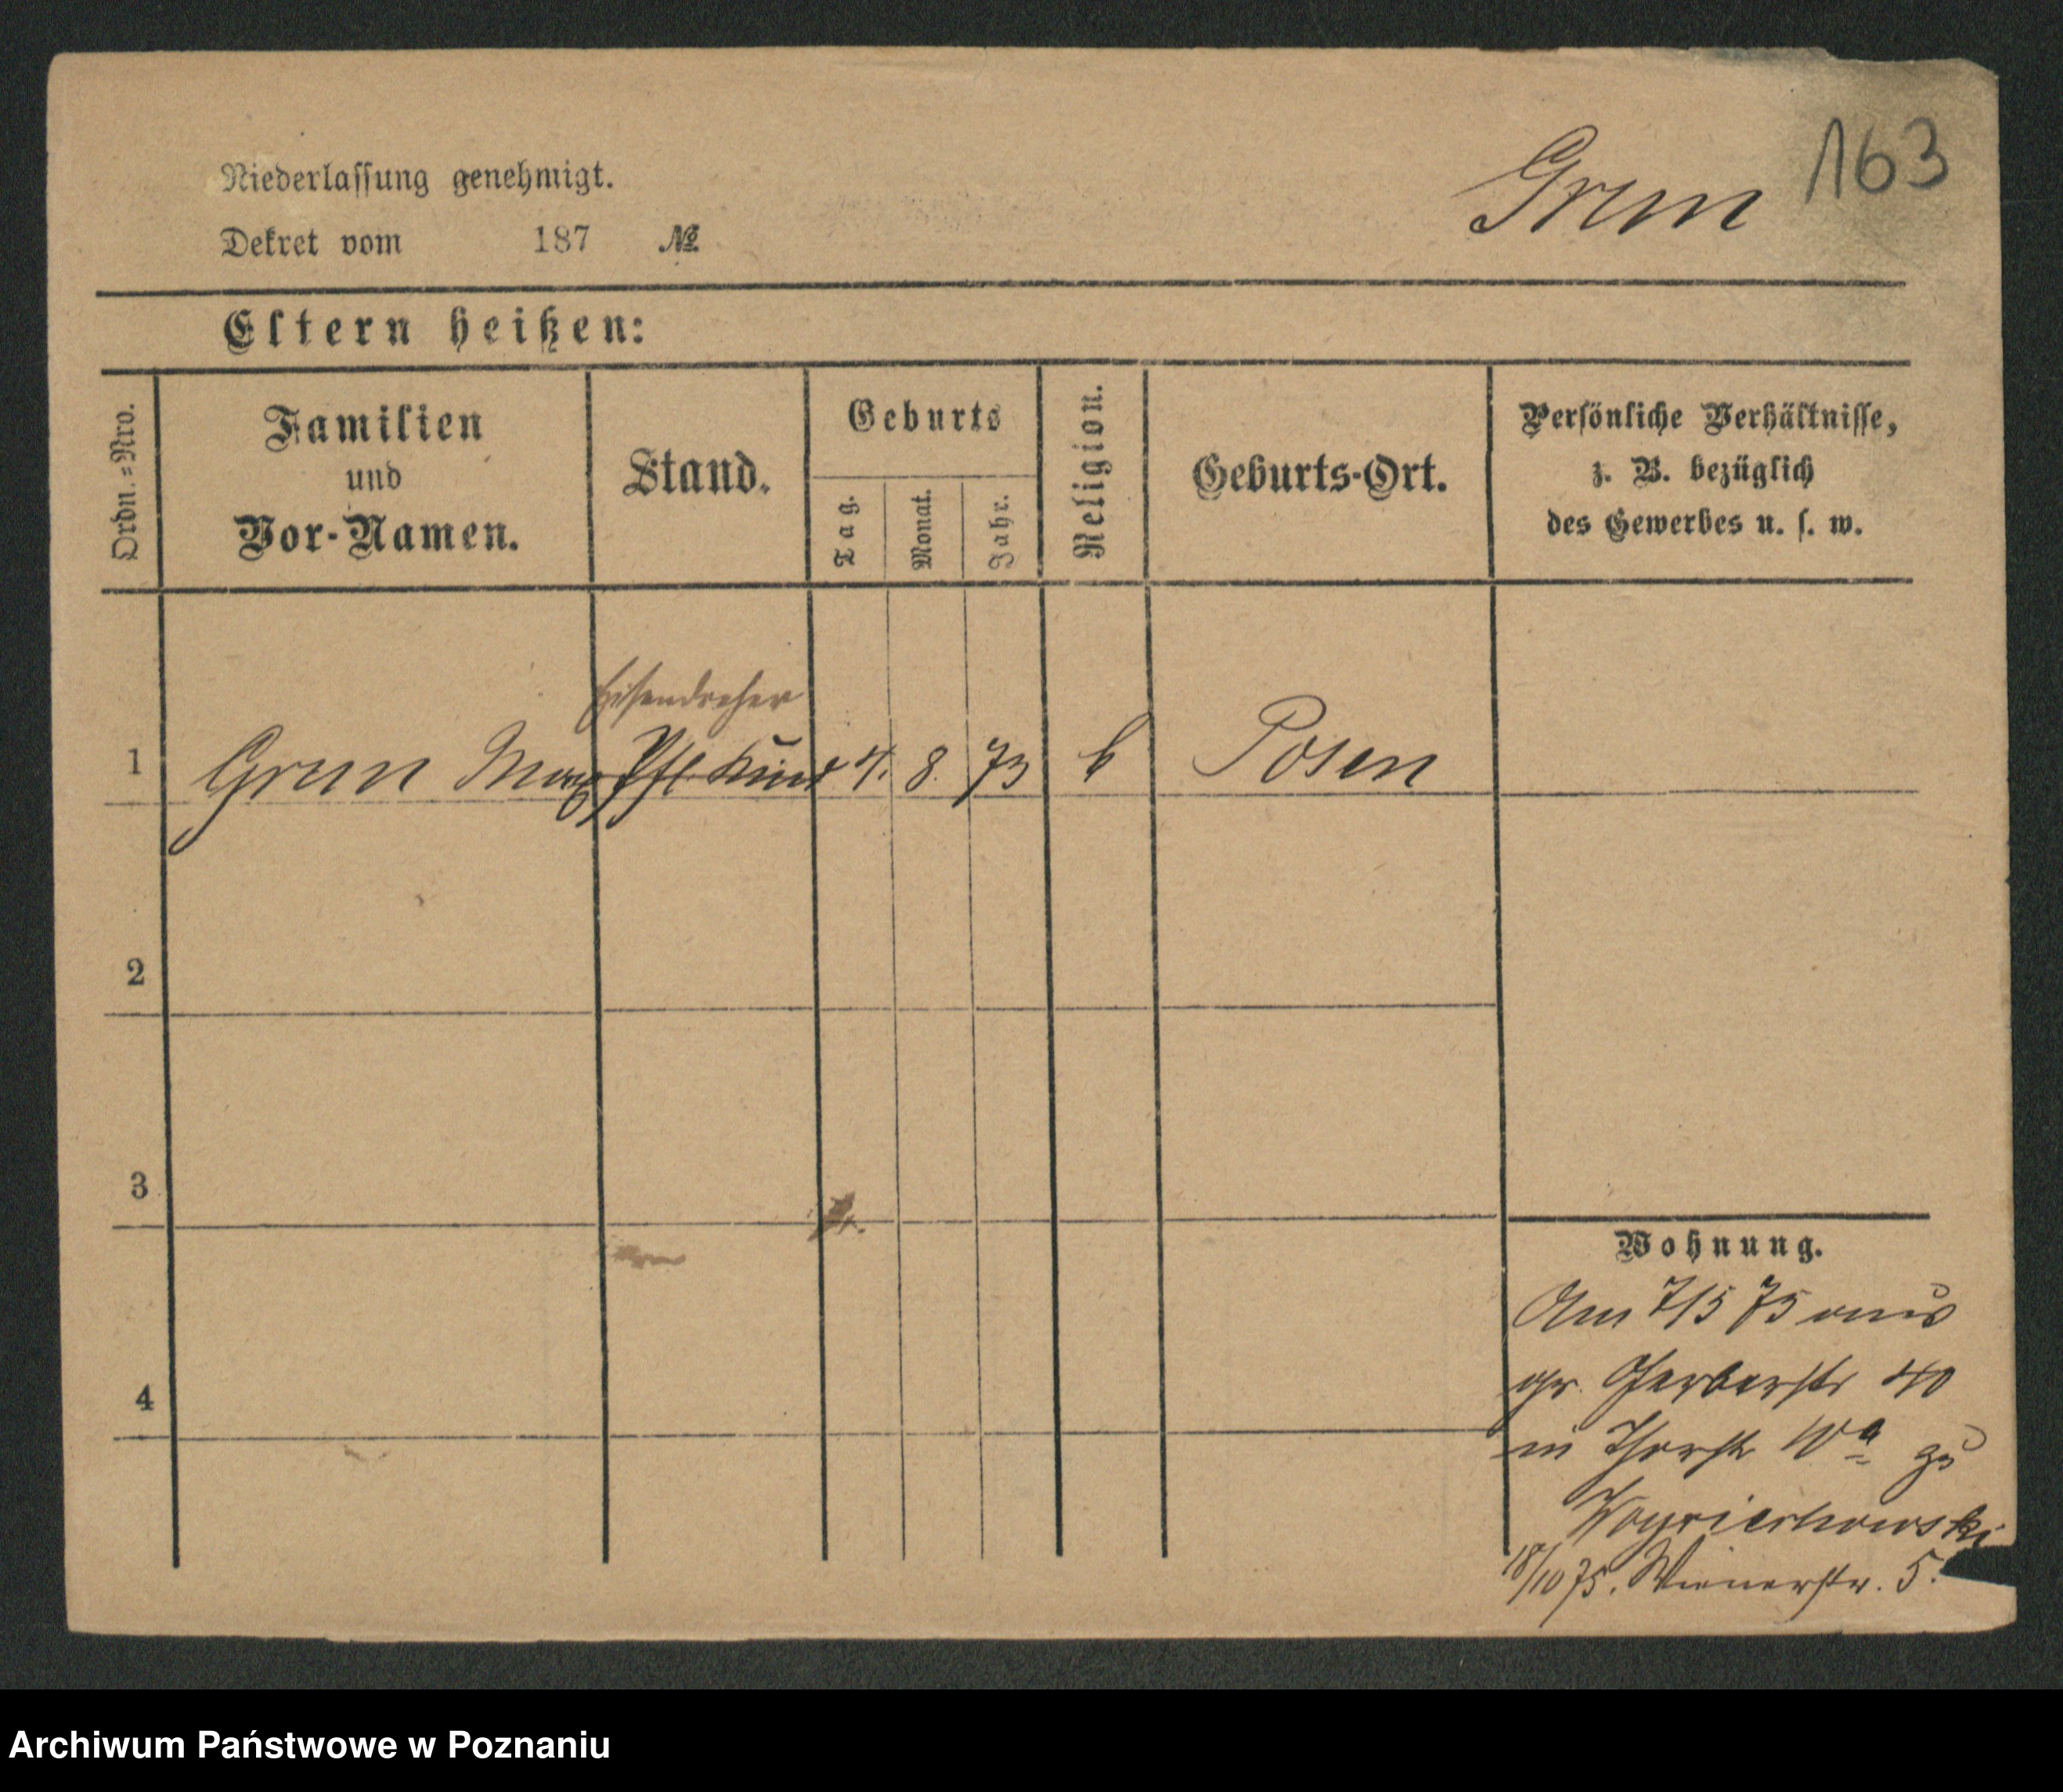 163
Grun
Niederlassung genehmigt.
Dekret vom 187 №
Eltern heißen:
Ordn.=Nro.
Familien
und
Vor-Namen.
Stand.
Geburts
Tag.
Monat.
Jahr.
Religion.
Geburts-Ort.
Persönliche Verhältnisse,
z. B. bezüglich
des Gewerbes u. s. w.
Eisendreher
1 Grun Max Pfl. Kind 4. 8. 73 Posen
2
3
4
Wohnung.
Am 7/5 75 aus
gr. Gerberstr 40
in Thorstr 10a zu
18/10 75. Wienerstr. 5.
Archiwum Państwowe w Poznaniu